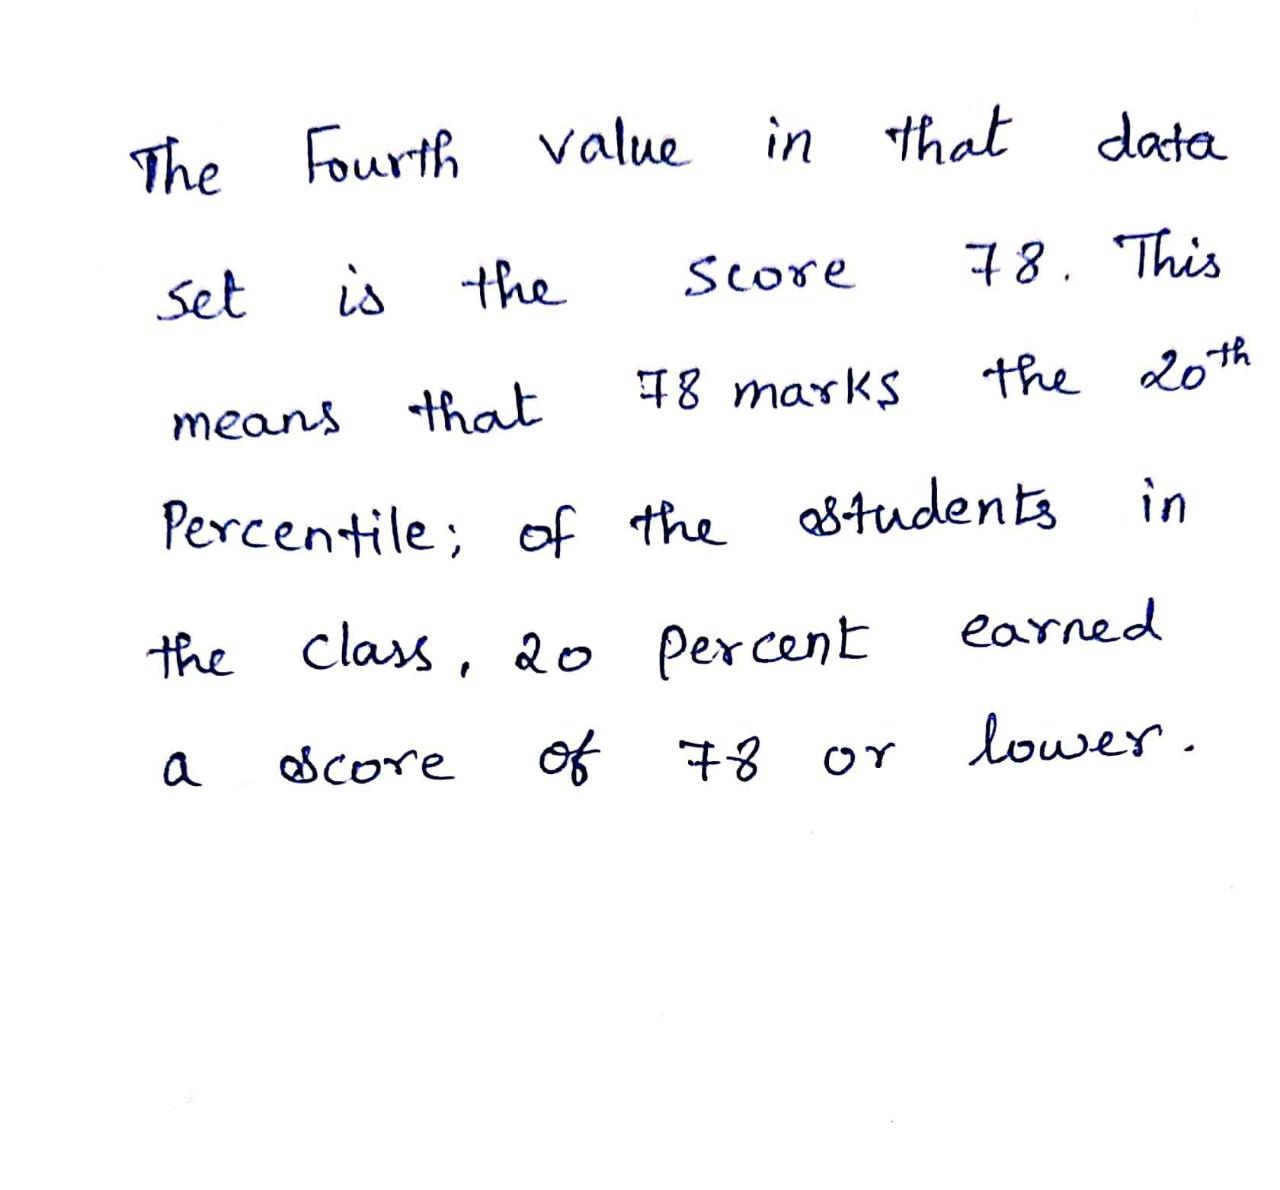 The Fourth value in that data
set is the score 78. This
means that 78 marks the 20th
Percentile; of the students in
the class, 20 percent earned
a score of 78 or lower.